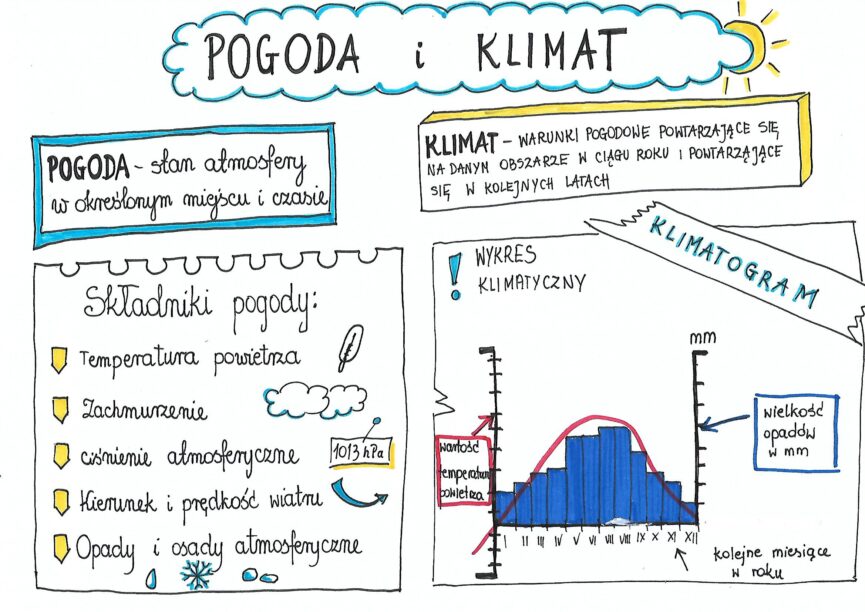 POGODA i KLIMAT
POGODA - stan atmosfery
w określonym miejscu i czasie
KLIMAT - WARUNKI POGODOWE POWTARZAJĄCE SIĘ
NA DANYM OBSZARZE W CIĄGU ROKU I POWTARZAJĄCE
SIĘ W KOLEJNYCH LATACH
Składniki pogody:
Temperatura powietrza
Zachmurzenie
ciśnienie atmosferyczne
1013 hPa
Kierunek i prędkość wiatru
Opady i osady atmosferyczne
KLIMATOGRAM
! WYKRES
KLIMATYCZNY
mm
wartość
temperatury
powietrza
wielkość
opadów
w mm
I II III IV V VI VII VIII IX X XI XII
kolejne miesiące
w roku